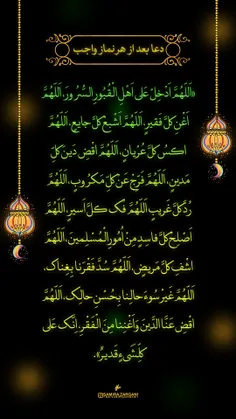 دعا بعد از هر نماز واجب
«اَللّهُمَّ اَدْخِلْ عَلى اَهْلِ الْقُبُورِ السُّرُورَ، اَللّهُمَّ
اَغْنِ كُلَّ فَقيرٍ، اَللّهُمَّ اَشْبِعْ كُلَّ جايِعٍ، اَللّهُمَّ
اكْسُ كُلَّ عُرْيانٍ، اَللّهُمَّ اقْضِ دَيْنَ كُلِّ
مَدينٍ، اَللّهُمَّ فَرِّجْ عَنْ كُلِّ مَكْرُوبٍ، اَللّهُمَّ
رُدَّ كُلَّ غَريبٍ، اَللّهُمَّ فُكَّ كُلَّ اَسيرٍ، اَللّهُمَّ
اَصْلِحْ كُلَّ فاسِدٍ مِنْ اُمُورِ الْمُسْلِمينَ، اَللّهُمَّ
اشْفِ كُلَّ مَريضٍ، اَللّهُمَّ سُدَّ فَقْرَنا بِغِناكَ،
اَللّهُمَّ غَيِّرْ سُوءَ حالِنا بِحُسْنِ حالِكَ، اَللّهُمَّ
اقْضِ عَنَّا الدَّيْنَ وَاَغْنِنا مِنَ الْفَقْرِ، اِنَّكَ عَلى
كُلِّ شَىْءٍ قَديرٌ».